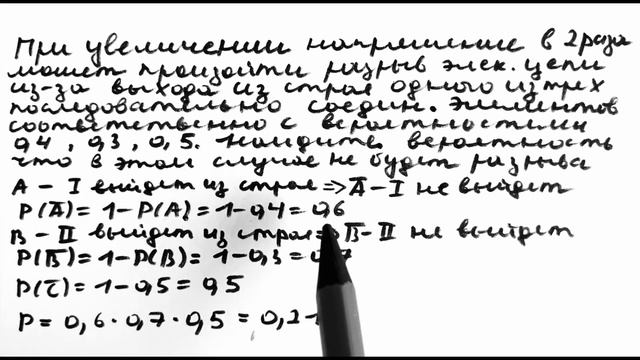 При увеличении напряжение в 2 раза
может произойти разрыв элек. цепи
из-за выхода из строя одного из трех
последовательно соедин. элементов
соответственно с вероятностями
0,4, 0,3, 0,5. Найдите вероятность
что в этом случае не будет разрыва
A - I выйдет из строя => A̅ - I не выйдет
P(A̅) = 1 - P(A) = 1 - 0,4 = 0,6
B - II выйдет из строя => B̅ - II не выйдет
P(B̅) = 1 - P(B) = 1 - 0,3 = 0,7
P(C̅) = 1 - 0,5 = 0,5
P = 0,6 · 0,7 · 0,5 = 0,21